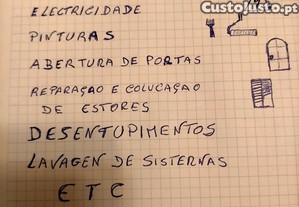 ELECTRICIDADE
CustoJusto.pt
PINTURAS
ABERTURA DE PORTAS
REPARAÇÃO E COLUCAÇAO
DE ESTORES
DESENTUPIMENTOS
LAVAGEN DE SISTERNAS
ETC